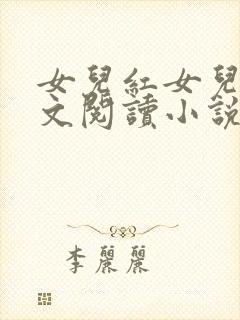 女兒紅女兒
文閱讀小說
李麗麗